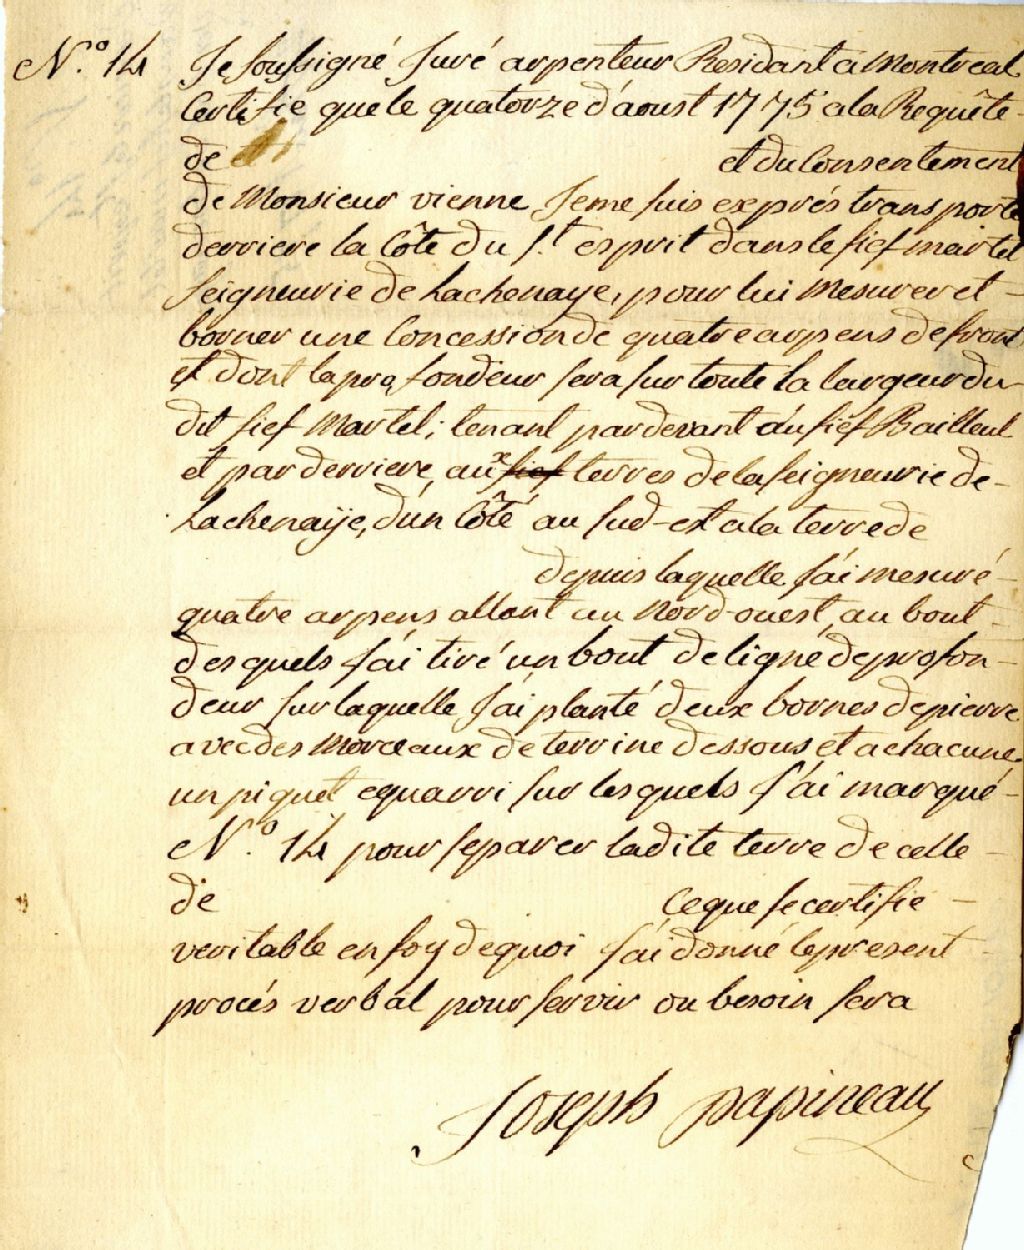 N.º 14 Je soussigné Juré arpenteur Residant a Montreal
Certifie que le quatorze d'aoust 1775 a la Requête
de et du Consentement
de Monsieur vienne Je me suis exprés transporté
derriere la Côte du S.t esprit dans le fief martel
seigneurie de Lachenaye, pour lui mesurer et
borner une Concession de quatre arpens de front
et dont la profondeur sera sur toute la largeur du
dit fief Martel; tenant par devant au fief Bailleul
et par derriere, aux fief terres de la seigneurie de
Lachenaÿe, d'un Côté au sud-est a la terre de
depuis laquelle J'ai mesuré
quatre arpens allant au Nord-ouest, au bout
desquels J'ai tiré un bout de ligne de profon-
deur sur laquelle J'ai planté deux bornes de pierre
avec des Morceaux de terrine dessous et a chacune
un piquet equarri sur lesquels J'ai marqué
N.º 14 pour separer ladite terre de celle
de Ce que Je certifie
veritable en foy de quoi J'ai donné le présent
procés verbal pour servir ou besoin sera
Joseph papineau